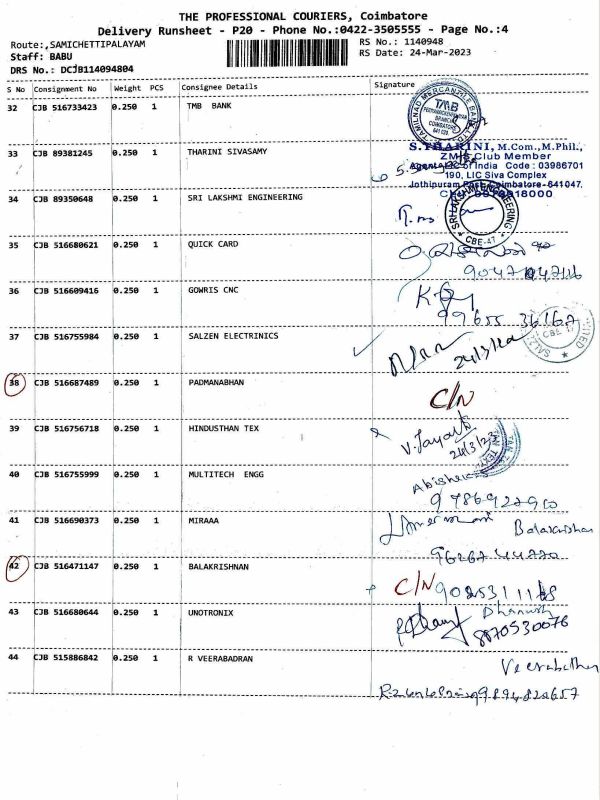 THE PROFESSIONAL COURIERS, Coimbatore
Delivery Runsheet - P20 - Phone No.:0422-3505555 - Page No.:4
Route:,SAMICHETTIPALAYAM
RS No.: 1140948
Staff: BABU
RS Date: 24-Mar-2023
DRS No.: DCJB114094804
S No Consignment No Weight PCS Consignee Details Signature
32 CJB 516733423 0.250 1 TMB BANK
TAMILNAD MERCANTILE BANK
TMB
BRANCH
COIMBATORE
641 029
33 CJB 89381245 0.250 1 THARINI SIVASAMY
S.THARINI, M.Com., M.Phil.,
ZM's Club Member
Agent LIC of India Code : 03986701
190, LIC Siva Complex
Jothipuram Post, Coimbatore-641047.
34 CJB 89350648 0.250 1 SRI LAKSHMI ENGINEERING
SRI LAKSHMI ENGINEERING
CBE-47
35 CJB 516680621 0.250 1 QUICK CARD
36 CJB 516609416 0.250 1 GOWRIS CNC
37 CJB 516755984 0.250 1 SALZEN ELECTRINICS
38 CJB 516687489 0.250 1 PADMANABHAN
C/N
39 CJB 516756718 0.250 1 HINDUSTHAN TEX
24/3/23
40 CJB 516755999 0.250 1 MULTITECH ENGG
41 CJB 516690373 0.250 1 MIRAAA
Balakrishnan
42 CJB 516471147 0.250 1 BALAKRISHNAN
C/N
43 CJB 516680644 0.250 1 UNOTRONIX
Dhanush
8870530076
44 CJB 515886842 0.250 1 R VEERABADRAN